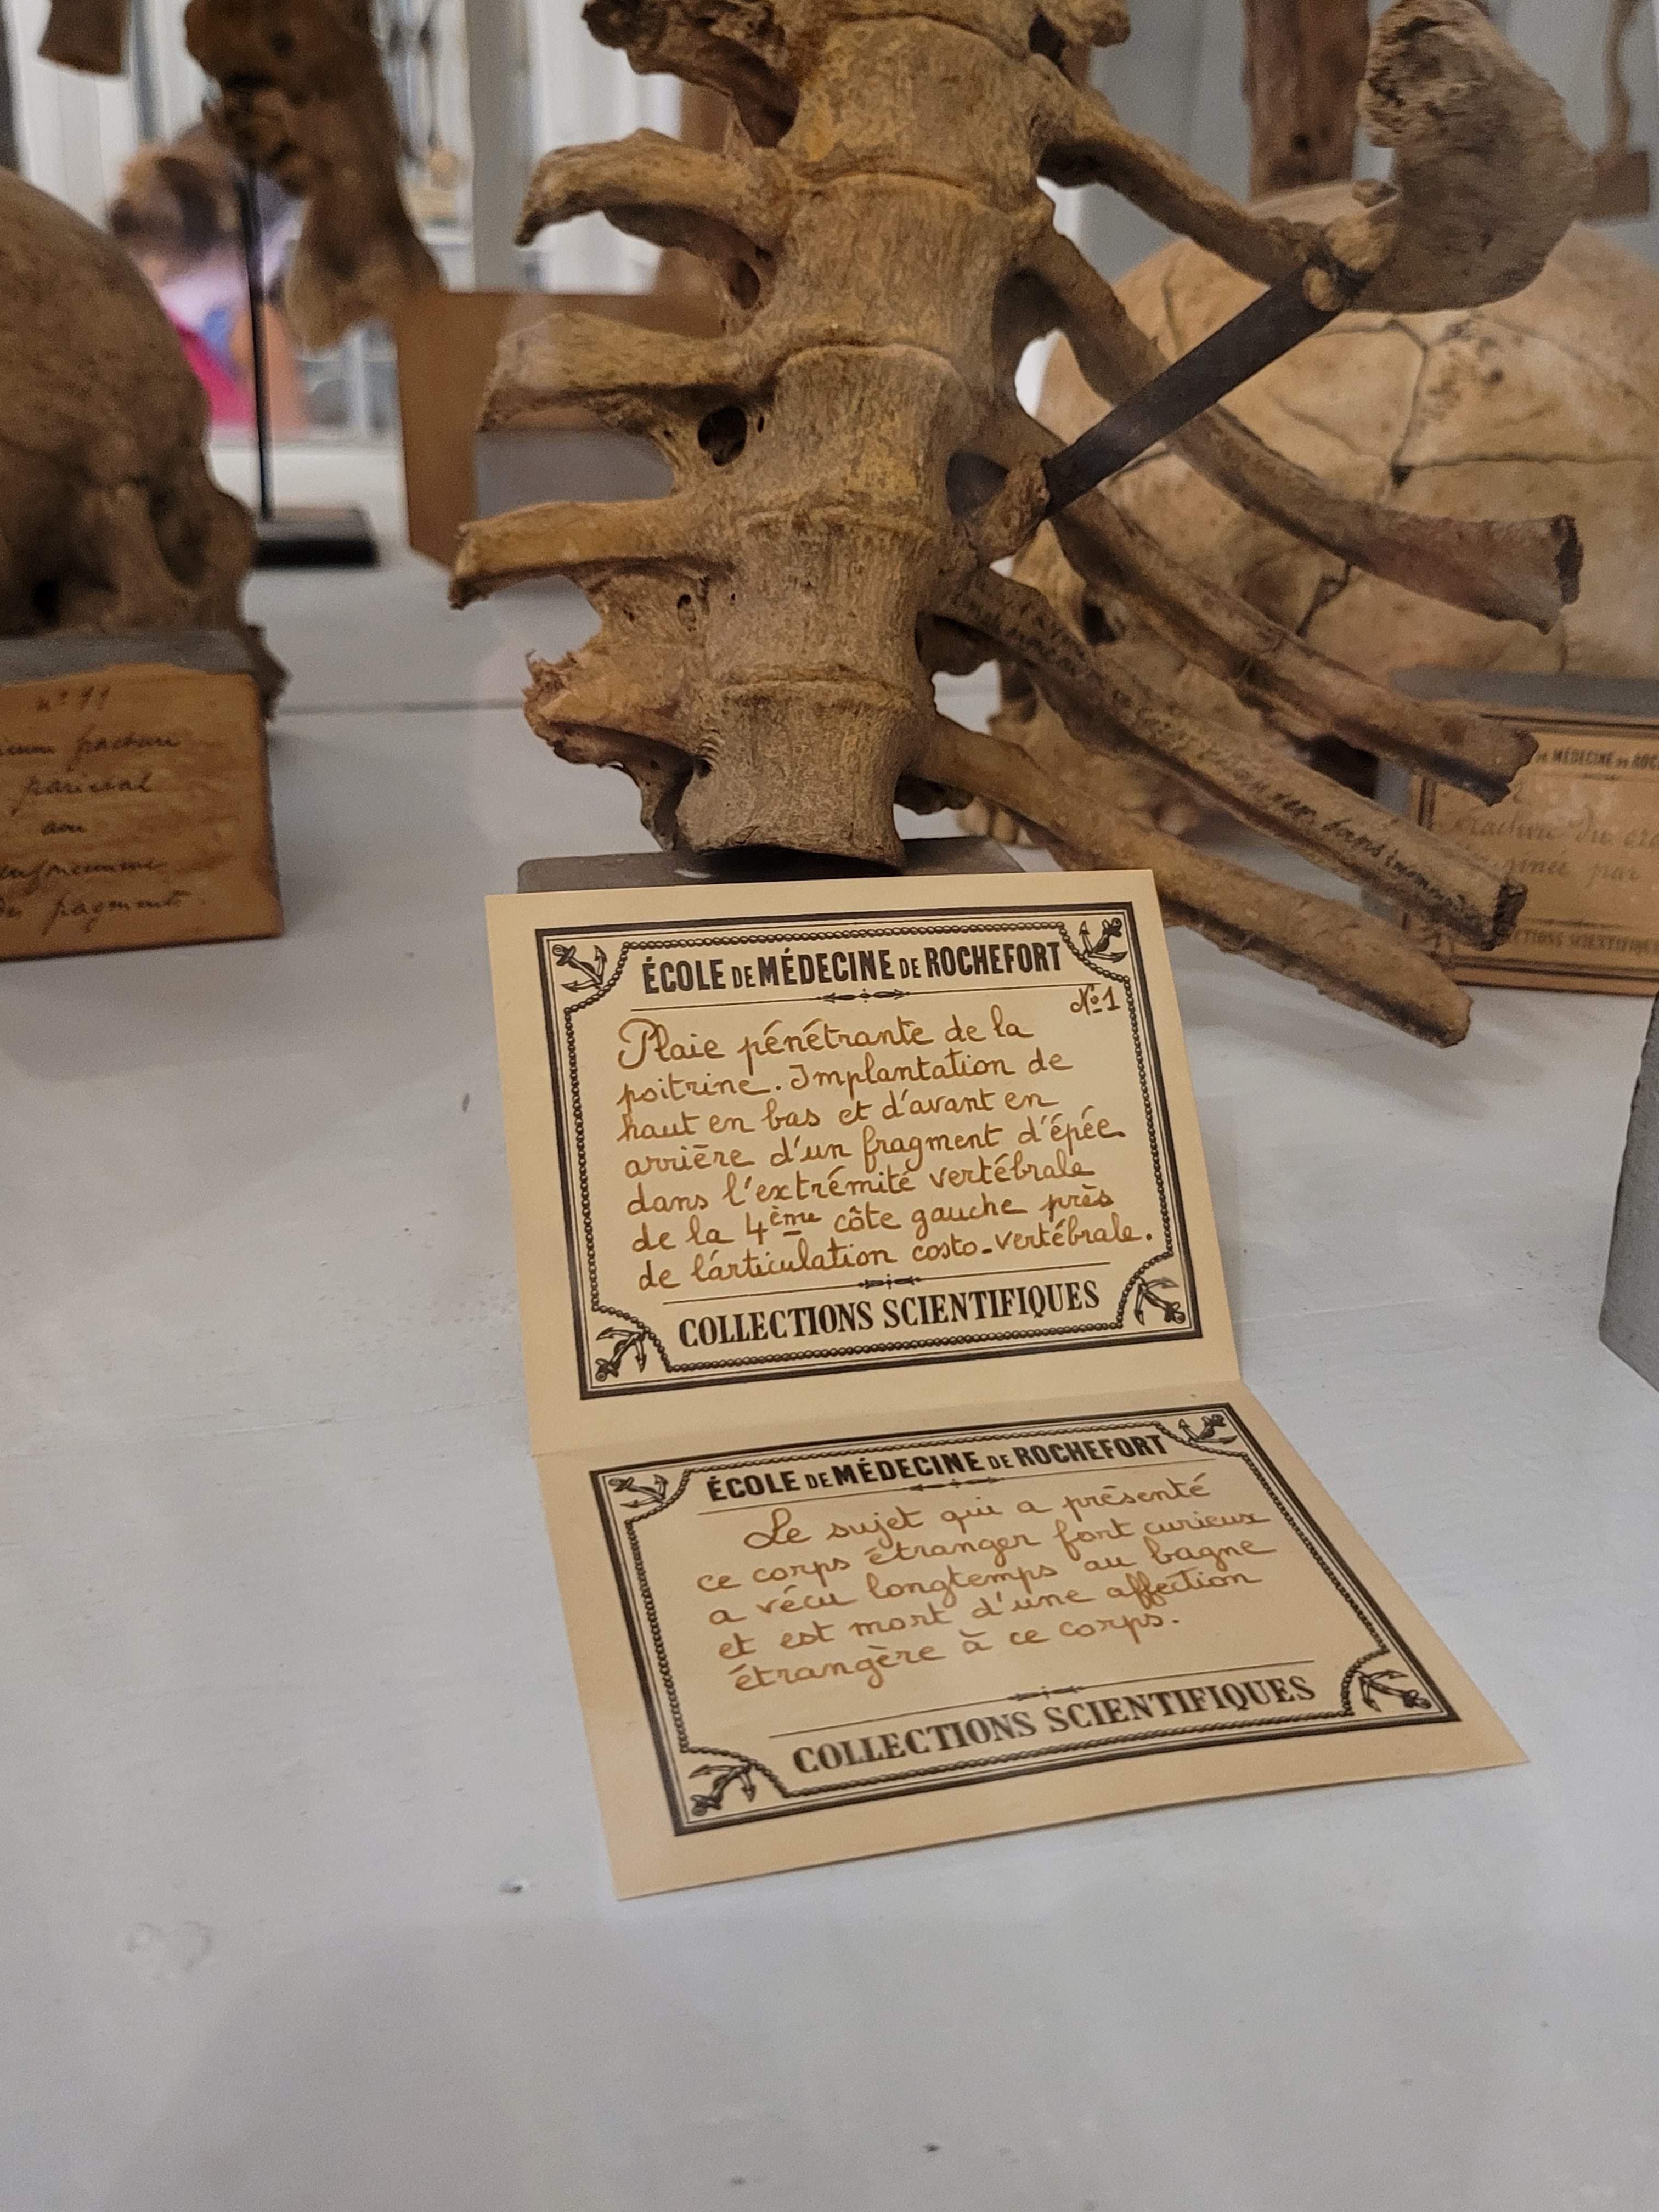 n° 91
fracture
parietal
des fragments.
ÉCOLE DE MÉDECINE DE ROCHEFORT
N°1
Plaie pénétrante de la
poitrine. Implantation de
haut en bas et d'avant en
arrière d'un fragment d'épée
dans l'extrémité vertébrale
de la 4ème côte gauche près
de l'articulation costo-vertébrale.
COLLECTIONS SCIENTIFIQUES
ÉCOLE DE MÉDECINE DE ROCHEFORT
Le sujet qui a présenté
ce corps étranger fort curieux
a vécu longtemps au bagne
et est mort d'une affection
étrangère à ce corps.
COLLECTIONS SCIENTIFIQUES
DE MÉDECINE DE
du
par
SCIENTIFIQUES